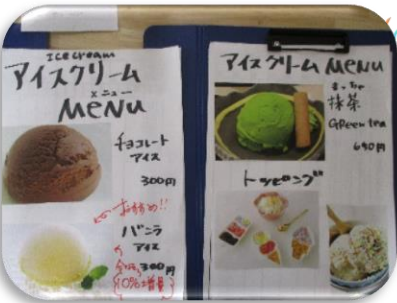 Ice cream
アイスクリーム
メニュー
MENU
チョコレート
アイス
300円
おすすめ!!
バニラ
アイス
300円
10%増量
アイスクリーム MENU
まっちゃ
抹茶
Green tea
690円
トッピング